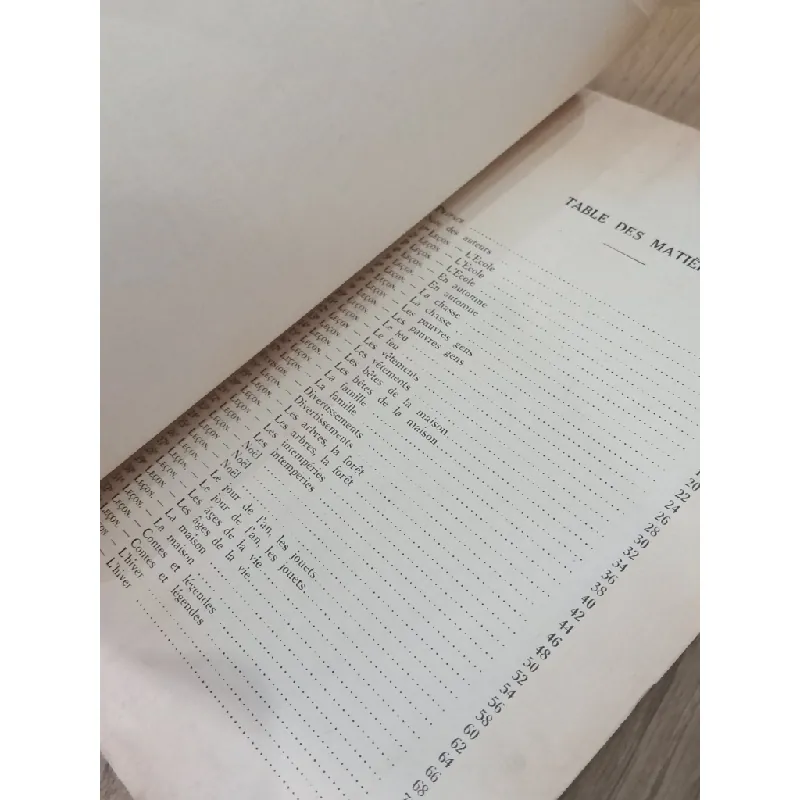 TABLE DES MATIÈ
des auteurs
Leçon — L'École
Leçon — L'École
Leçon — L'École
Leçon — En automne
Leçon — En automne
Leçon — La chasse
Leçon — La chasse
Leçon — Les pauvres gens
Leçon — Les pauvres gens
Leçon — Le feu
Leçon — Le feu
Leçon — Les vêtements
Leçon — Les vêtements
Leçon — Les bêtes de la maison
Leçon — Les bêtes de la maison
Leçon — La famille
Leçon — La famille
Leçon — Divertissements
Leçon — Divertissements
Leçon — Les arbres, la forêt
Leçon — Les arbres, la forêt
Leçon — Les intempéries
Leçon — Les intempéries
Leçon — Noël
Leçon — Noël
Leçon — Le jour de l'an, les jouets
Leçon — Le jour de l'an, les jouets
Leçon — Les âges de la vie
Leçon — Les âges de la vie
Leçon — La maison
Leçon — La maison
Leçon — Contes et légendes
Leçon — Contes et légendes
— L'hiver
— L'hiver
20
22
24
26
28
30
32
34
36
38
40
42
44
46
48
50
52
54
56
58
60
62
64
66
68